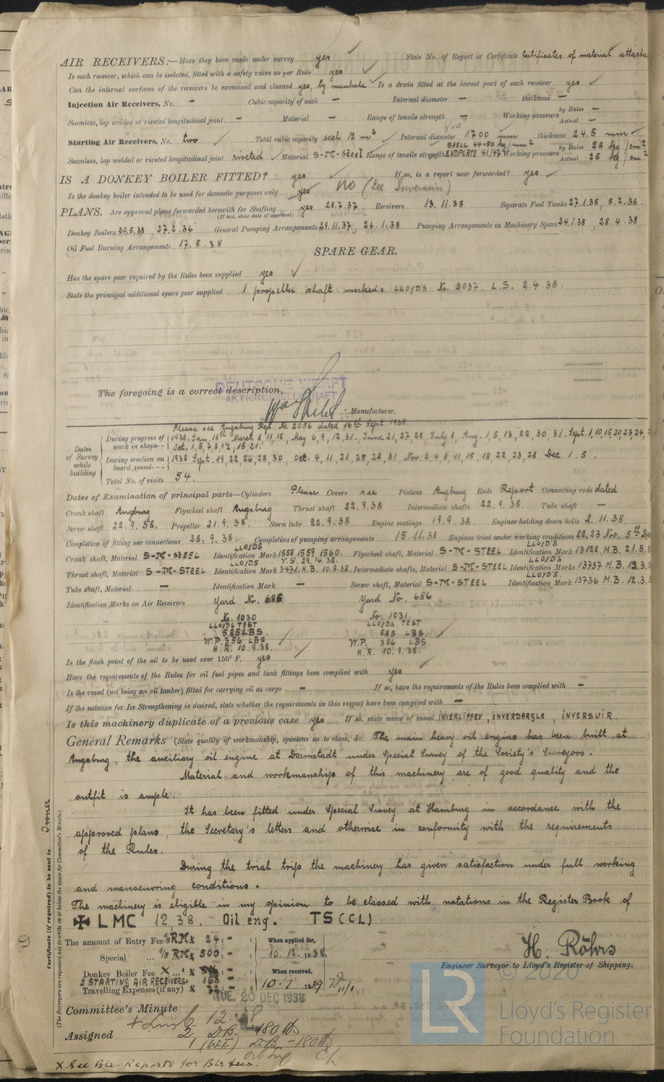 AIR RECEIVERS:—Have they been made under survey yes State No. of Report or Certificate Certificates of material attache
Is each receiver, which can be isolated, fitted with a safety valve as per Rule yes
Can the internal surfaces of the receivers be examined and cleaned yes, by manhole Is a drain fitted at the lowest part of each receiver yes
Injection Air Receivers, No. - Cubic capacity of each - Internal diameter - thickness -
Seamless, lap welded or riveted longitudinal joint - Material - Range of tensile strength - Working pressure by Rules - Actual -
Starting Air Receivers, No. two Total cubic capacity each 12 m³ Internal diameter 1700 mm thickness 24.5 mm
Seamless, lap welded or riveted longitudinal joint riveted Material S-M-Steel Range of tensile strength SHELL 44-50 kg/mm² ENDPLATE 41/47 Working pressure by Rules 25 kg/cm² Actual 25 kg/cm²
IS A DONKEY BOILER FITTED? yes If so, is a report now forwarded? yes
Is the donkey boiler intended to be used for domestic purposes only yes NO (See
PLANS. Are approved plans forwarded herewith for Shafting yes 28.7.37 Receivers 13.11.35 Separate Fuel Tanks 27.1.35, 5.2.38
(If not, state date of approval)
Donkey Boilers 20.5.38 27.2.36 General Pumping Arrangements 29.11.37, 26.1.38 Pumping Arrangements in Machinery Space 24.1.38, 28.4.38
Oil Fuel Burning Arrangements 17.5.38
SPARE GEAR.
Has the spare gear required by the Rules been supplied yes
State the principal additional spare gear supplied 1 propeller shaft marked: LLOYD'S No. 2037. L.S. 2.4.38
DEUTSCHE WERFT
The foregoing is a correct description,
AKTIENGESELLSCHAFT
Manufacturer.
Please see Augsburg Rpt No. 2056 dated 16th Sept. 1938
Dates of Survey while building
During progress of work in shops - - 1938. Jan. 15th March 8, 11, 18, May 6, 9, 12, 31. June 21, 27, 28, July 8, Aug. 1, 5, 13, 22, 30, 31. Sept. 1, 10, 15, 20, 23, 24
Oct. 1, 5, 7, 8, 12, 15, 21.
During erection on board vessel - - - 1938 Sept. 19, 22, 26, 28, 30, Oct. 4, 11, 21, 25, 28, 31 Nov. 2, 4, 8, 11, 15, 18, 22, 23, 28 Dec. 1. 5.
Total No. of visits 54.
Dates of Examination of principal parts—Cylinders Please Covers see Pistons Augsburg Rods Report Connecting rods dated
Crank shaft Augsburg Flywheel shaft Augsburg Thrust shaft 22.9.38 Intermediate shafts 22.9.38 Tube shaft -
Screw shaft 22.9.38. Propeller 21.9.38. Stern tube 22.9.38 Engine seatings 19.9.38 Engines holding down bolts 2.11.38
Completion of fitting sea connections 28.9.38. Completion of pumping arrangements 15.11.38 Engines tried under working conditions 22,23 Nov. 5th De
Crank shaft, Material S-M-STEEL Identification Mark LLOYDS 1558 1559 1560. Flywheel shaft, Material S-M-STEEL Identification Mark LLOYD'S 13128 M.B. 21.5.3
Thrust shaft, Material S-M-STEEL Identification Mark LLOYDS 3471 H.B. 10.8.38. Intermediate shafts, Material S-M-STEEL Identification Marks LLOYD'S 13737 M.B. 12.3.3
Tube shaft, Material - Identification Mark - Screw shaft, Material S-M-STEEL Identification Mark LLOYD'S 13736 M.B. 12.3.3
Identification Marks on Air Receivers Yard No. 686 Yard No. 686
No. 1030 No. 1031
LLOYDS TEST LLOYDS TEST
585 LBS 585 LBS
W.P. 356 LBS W.P. 356 LBS
H.R. 10.9.38. H.R. 10.9.38.
Is the flash point of the oil to be used over 150° F. yes
Have the requirements of the Rules for oil fuel pipes and tank fittings been complied with yes
Is the vessel (not being an oil tanker) fitted for carrying oil as cargo - If so, have the requirements of the Rules been complied with -
If the notation for Ice Strengthening is desired, state whether the requirements in this respect have been complied with -
Is this machinery duplicate of a previous case yes If so, state name of vessel INVERLIFFEY, INVERDARGLE, INVERSUIR
General Remarks (State quality of workmanship, opinions as to class, &c. The main heavy oil engine has been built at
Augsburg, the auxiliary oil engine at Darmstadt under Special Survey of the Society's Surveyors.
Material and workmanship of this machinery are of good quality and the
outfit is ample.
It has been fitted under Special Survey at Hamburg in accordance with the
approved plans the Secretary's letters and otherwise in conformity with the requirements
of the Rules.
During the trial trips the machinery has given satisfaction under full working
and manoeuvring conditions.
The machinery is eligible in my opinion to be classed with notations in the Register Book of
✠ LMC 12.38. Oil eng. TS (CL)
The amount of Entry Fee RM 24 : - When applied for,
Special RM 500 : - 10.12.1938
Donkey Boiler Fee When received,
2 STARTING AIR RECEIVERS
Travelling Expenses (if any)
H. Röhrs
Engineer Surveyor to Lloyd's Register of Shipping.
TUE. 20 DEC 1938
Committee's Minute
Assigned
X See Blr. Reports for Blr fees.
Certificate (if required) to be sent to Owner
(The Surveyors are requested not to write on or below the space for Committee's Minute.)
LR
Lloyd's Register
Foundation